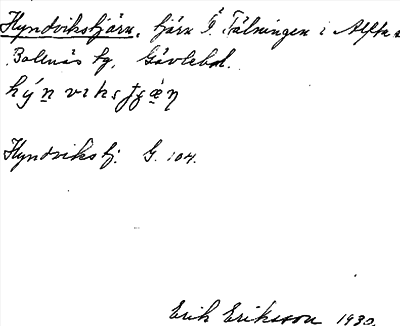 Hyndvikstjärn, tjärn i Tälningen i Alfta s
Bollnäs tg, Gävlebol.
Hyndvikstj. G. 104.
Erik Eriksson 1930.